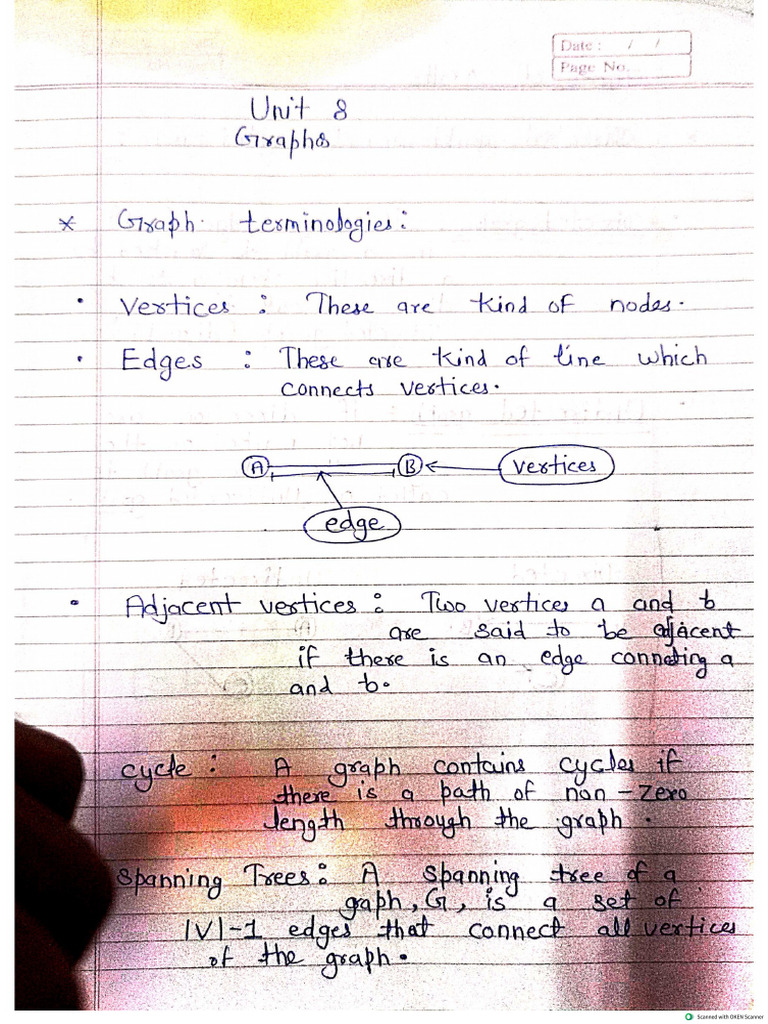 Date : / /
Page No.
Unit 8
Graphs
* Graph terminologies:
• Vertices : These are kind of nodes.
• Edges : These are kind of line which
connects vertices.
A B vertices
edge
• Adjacent vertices : Two vertices a and b
are said to be adjacent
if there is an edge conneting a
and b.
cycle : A graph contains cycles if
there is a path of non-zero
length through the graph .
Spanning Trees : A spanning tree of a
gaph, G, is a set of
|V|-1 edges that connect all vertices
of the graph.
Scanned with OKEN Scanner